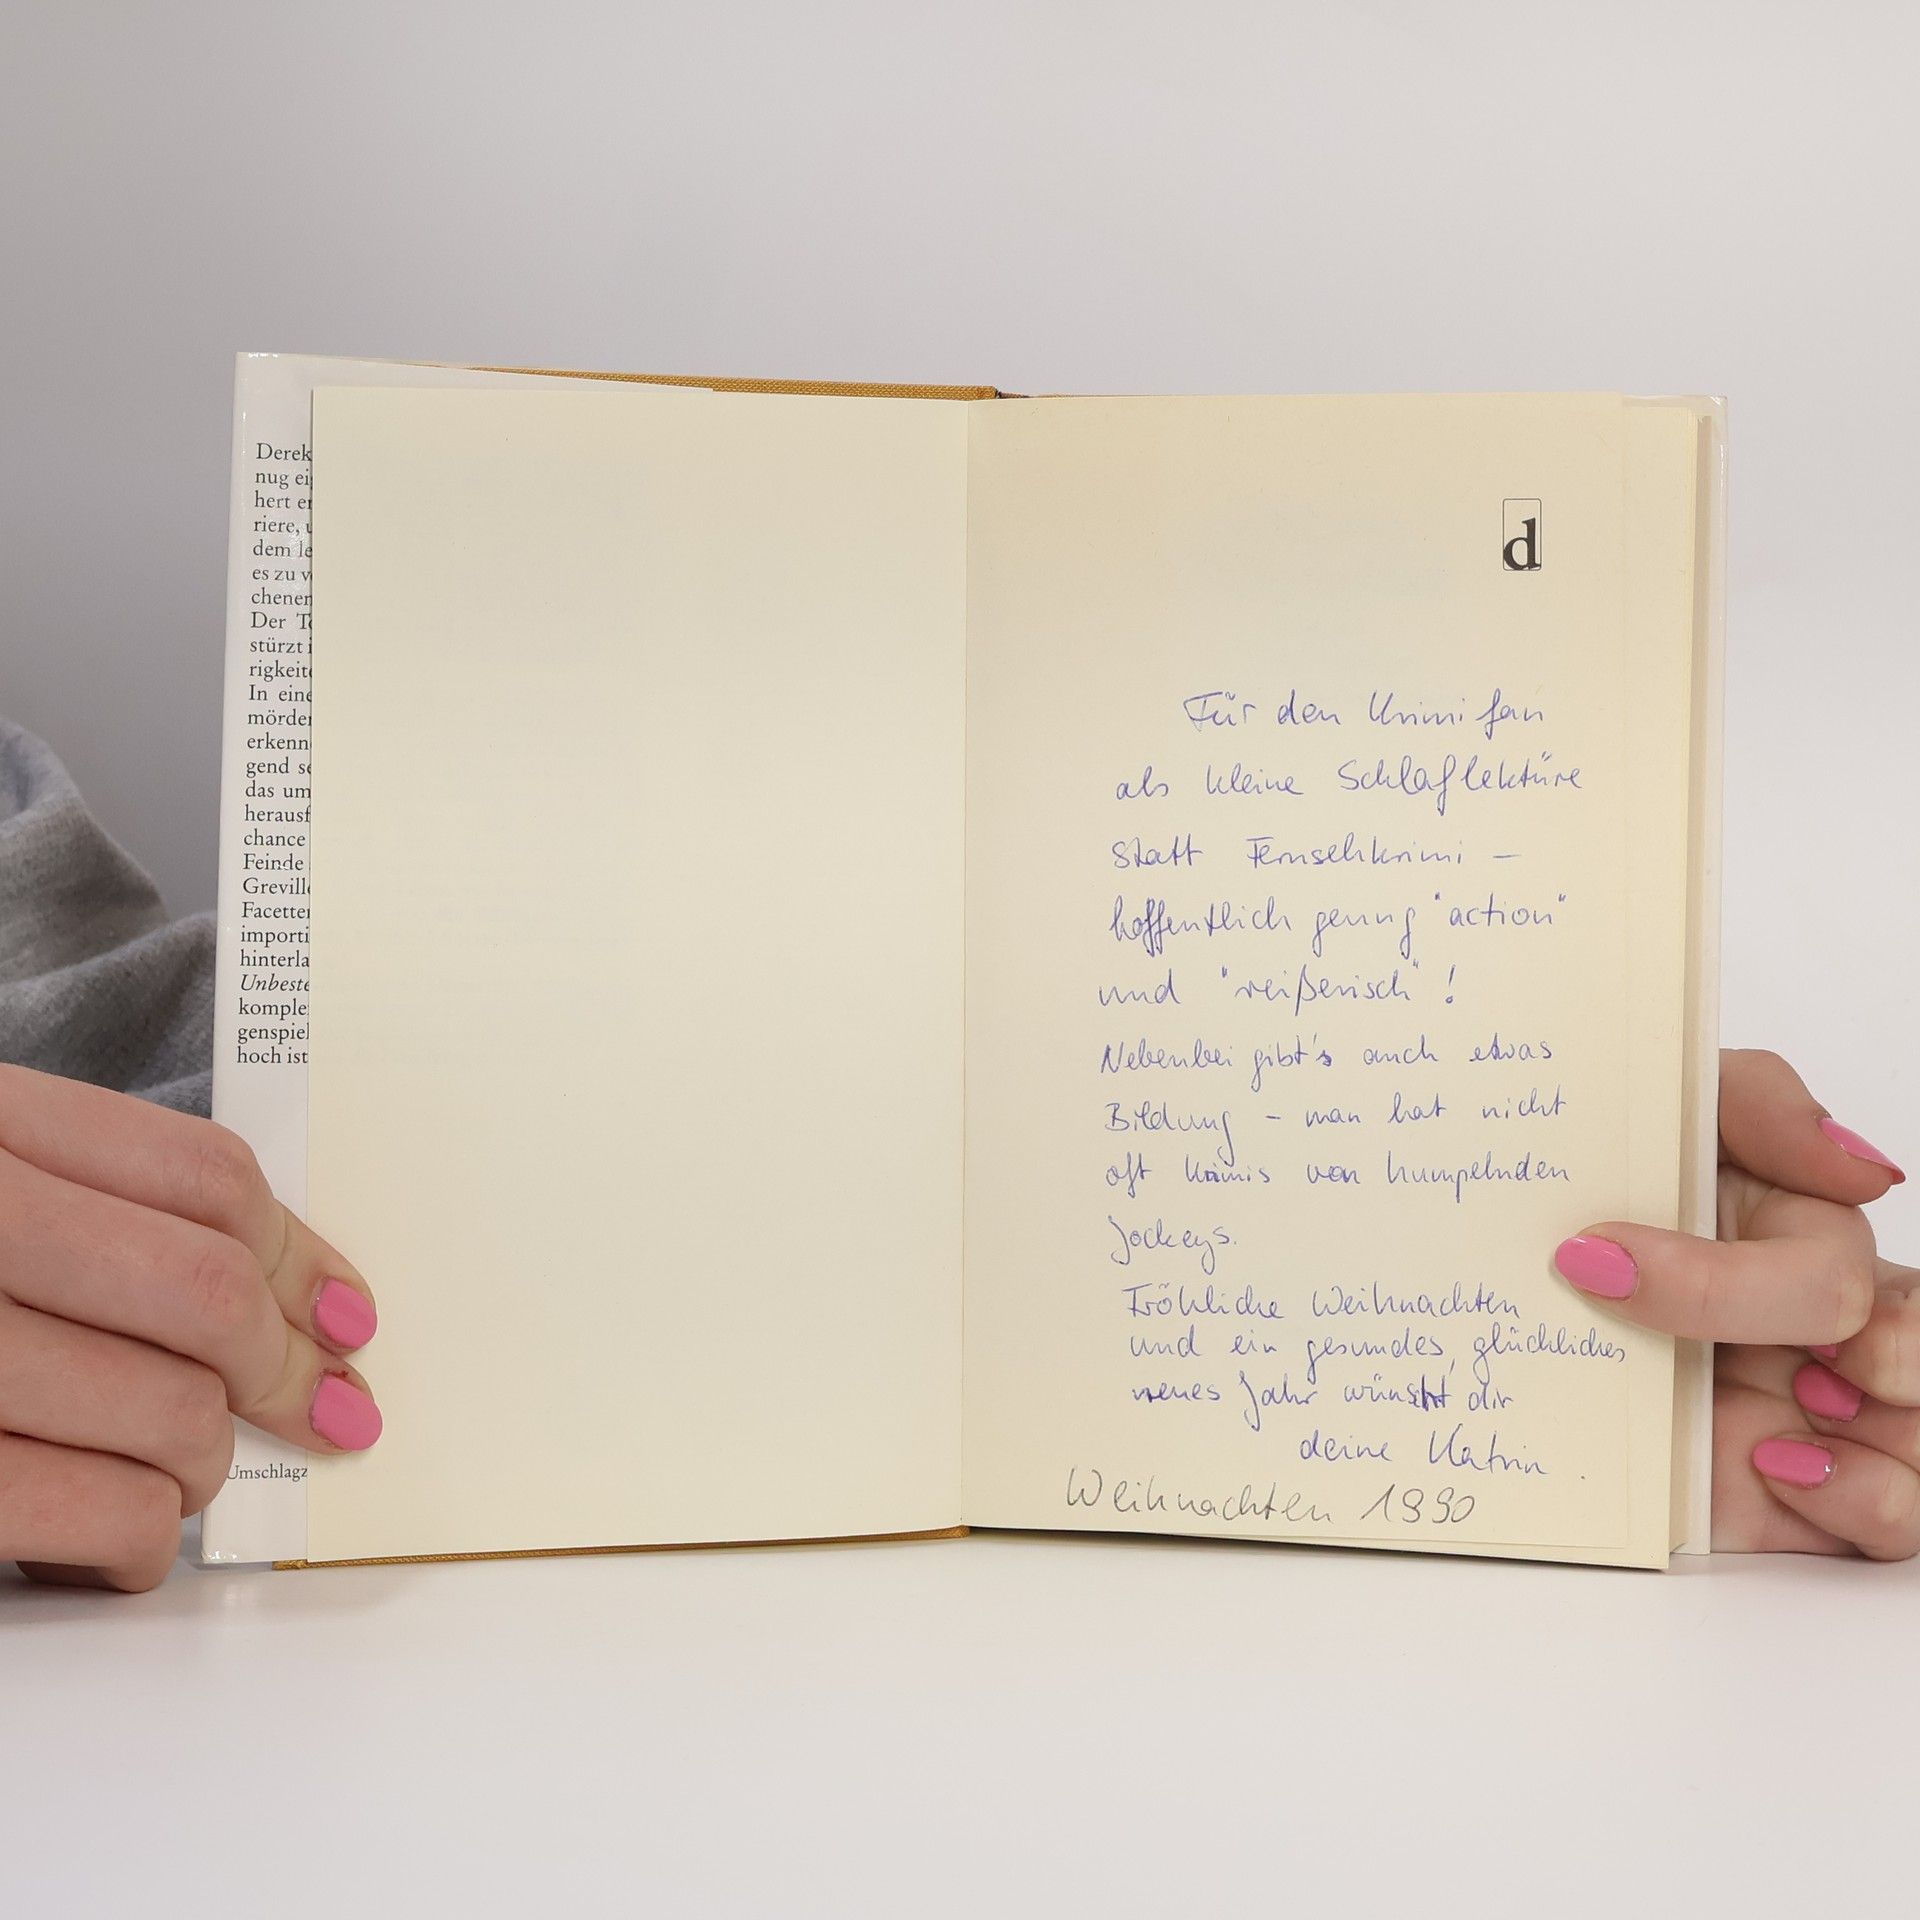 Derek
nug ei
hert er
riere, u
dem le
es zu v
chenen
Der To
stürzt i
rigkeite
In eine
mörder
erkenn
gend se
das um
herausf
chance
Feinde
Greville
Facetten
importi
hinterla
Unbeste
komple
genspiel
hoch ist
Umschlagz
d
Für den Krimifan
als kleine Schlaflektüre
statt Fernsehkrimi –
hoffentlich genug "action"
und "reißerisch"!
Nebenbei gibt's auch etwas
Bildung – man hat nicht
oft Krimis von humpelnden
Jockeys.
Fröhliche Weihnachten
und ein gesundes, glückliches
neues Jahr wünscht dir
deine Katrin.
Weihnachten 1990